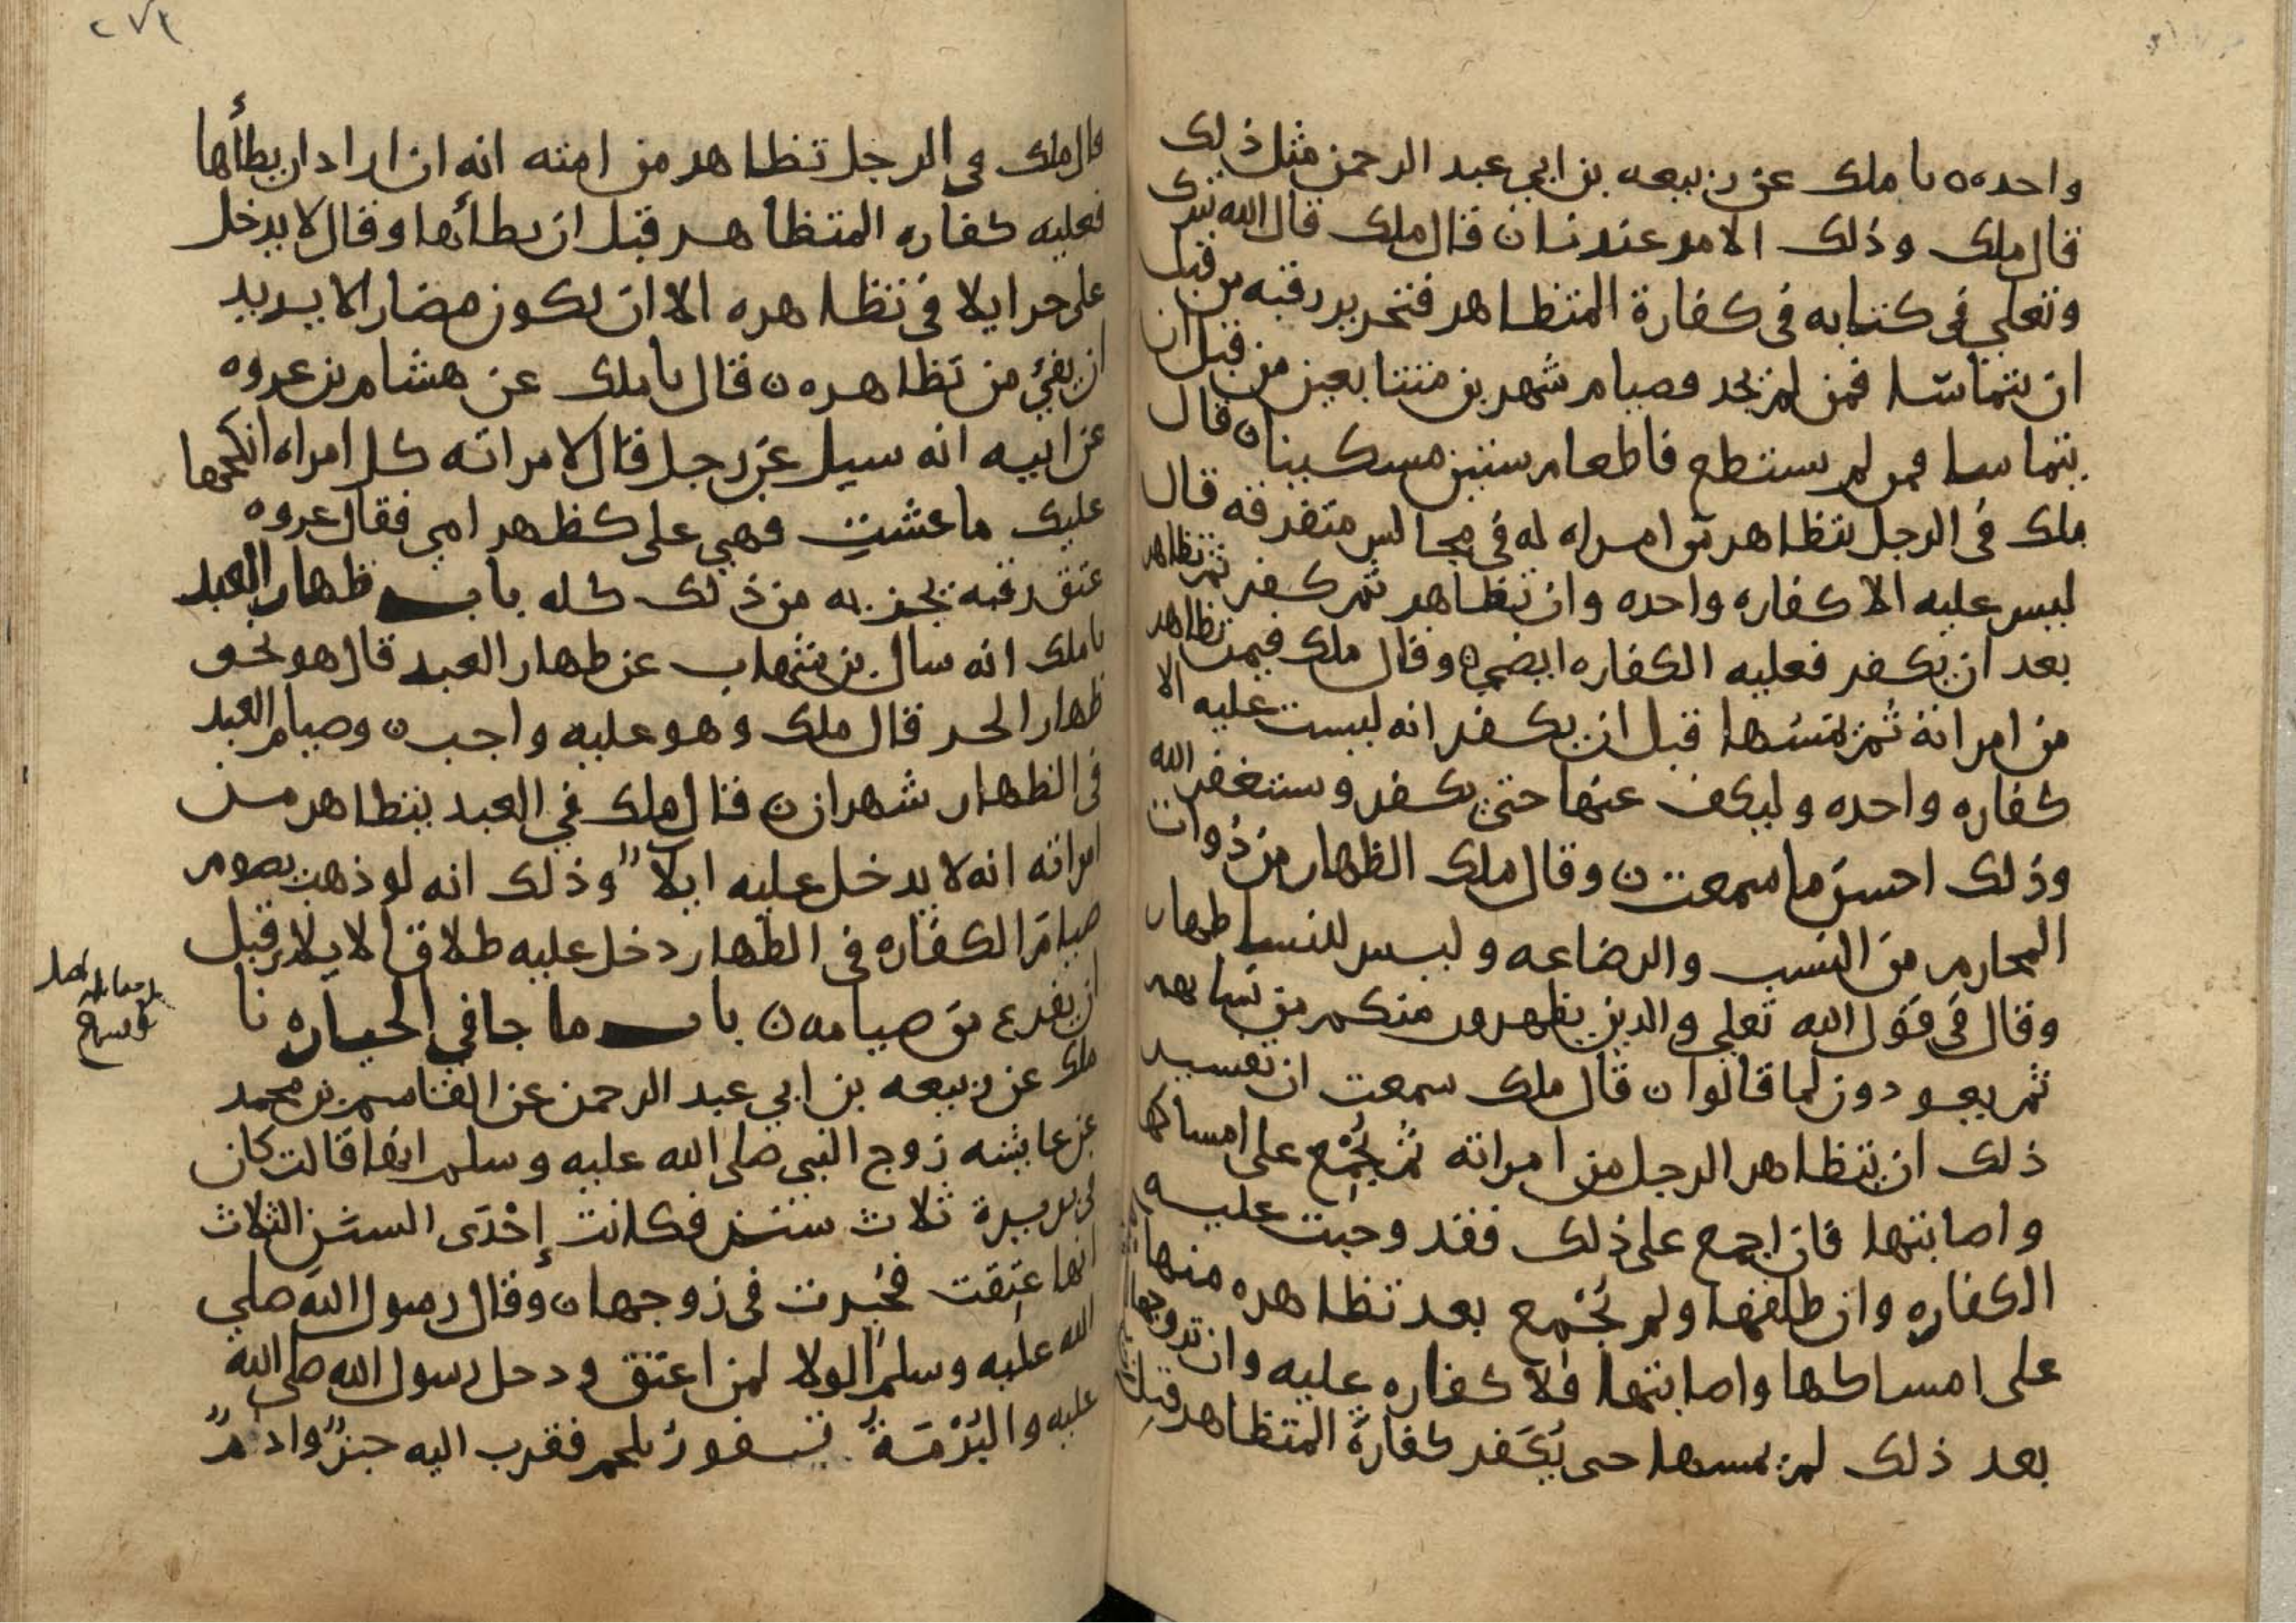 واحده ٥ نا ملك عن ربيعه بن ابي عبد الرحمن مثل ذلك
قال ملك وذلك الامر عندنا ن قال ملك قال الله تبرك
وتعلي في كتابه في كفارة المتظاهر فتحرير رقبه من قبل
ان يتماسا فمن لم يجد فصيام شهرين متتابعين من قبل ان
يتماسا فمن لم يستطع فاطعام ستين مسكينا ن قال
ملك في الرجل يتظاهر من امراه له في مجالس متفرقه قال
ليس عليه الا كفاره واحده وان تظاهر ثم كفر ثم تظاهر
بعد ان يكفر فعليه الكفاره ايضي ٥ وقال ملك فيمن تظاهر
من امراته ثم يمسها قبل ان يكفر انه ليست عليه الا
كفاره واحده وليكف عنها حتى يكفر وستغفر الله
وذلك احسن ما سمعت ن وقال ملك الظهار من ذوات
المحارم من النسب والرضاعه وليس للنسا ظهار
وقال في قول الله تعلي والذين يظهرون منكم من نسايهم
ثم يعودون لما قالوا ن قال ملك سمعت ان تفسير
ذلك ان يتظاهر الرجل من امراته ثم يُجْمِع على امساكها
واصابتها فان اجمع على ذلك فقد وجبت عليه
الكفاره وان طلقها ولم يُجْمِع بعد تظاهره منها
على امساكها واصابتها فلا كفاره عليه وان تزوجها
بعد ذلك لم يمسها حى يُكَفر كفارة المتظاهر قبل
٢٧٢
قال ملك في الرجل تظاهر من امته انه ان اراد ان يطأها
فعليه كفاره المتظاهر قبل ان يطأها وقال لا يدخل
على حر ايلا في تظاهره الا ان يكون مضارا لا يريد
ان يفئ من تظاهره ن قال نا ملك عن هشام بن عروه
عن ابيه انه سيل عن رجل قال لامراته كل امراه انكحها
عليك ما عشتِ فهي على كظهر امي فقال عروه
عتق رقبه يجزيه من ذلك كله باب ظهار العبد
نا ملك انه سال بن شهاب عن ظهار العبد قال هو نحو
ظهار الحر قال ملك وهو عليه واجب ن وصيام العبد
في الظهار شهران ن قال ملك في العبد يتظاهر من
امراته انه لا يدخل عليه ايلاً وذلك انه لو ذهب يصوم
صيام الكفاره في الظهار دخل عليه طلاق الايلا قبل
ان يفرع من صيامه ن باب ما جا في الخياره نا
ملك عن ربيعه بن ابي عبد الرحمن عن القاسم بن محمد
عن عايشه زوج النبي صلى الله عليه وسلم انها قالت كان
في بريرة ثلاث سنن فكانت إحْدَى السنن الثلاث
انها عتِقت فخُيرت في زوجها ن وقال رسول الله صلي
الله عليه وسلم الولا لمن اعتق ودخل رسول الله صلى الله
عليه والبُرْمَةُ تفورُ بلحم فقرب اليه خبزٌ وادمٌ